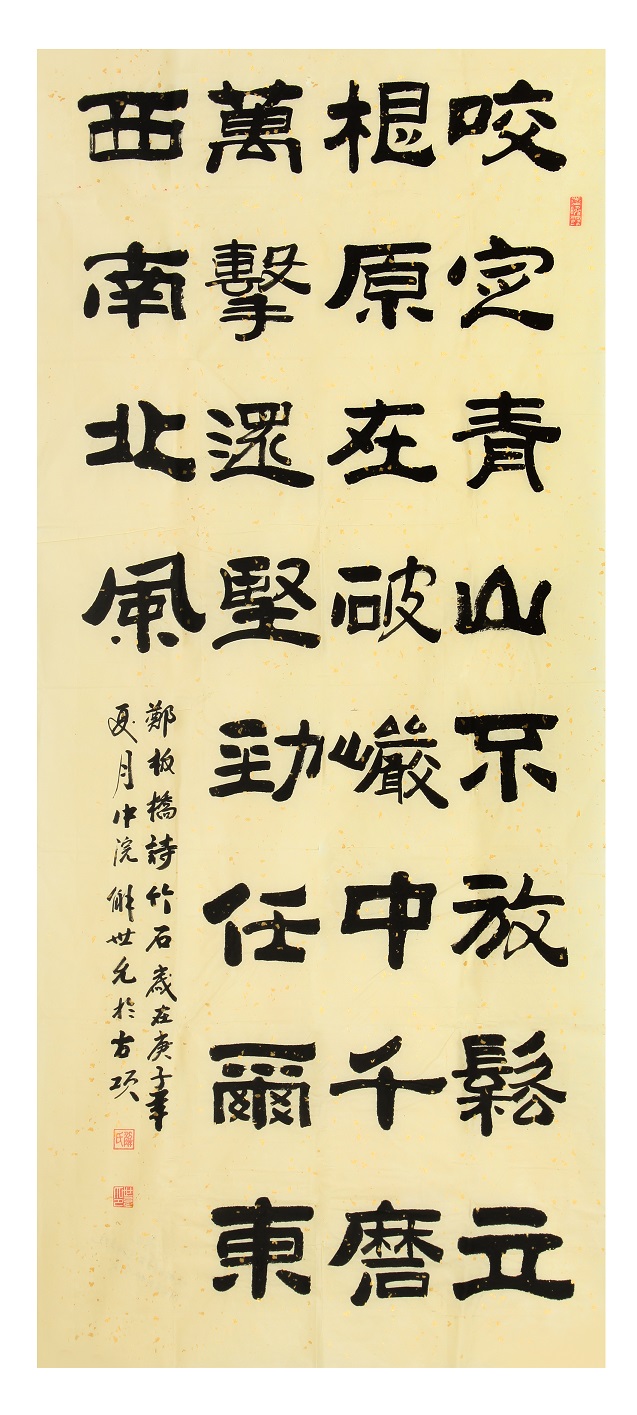 咬定青山不放鬆立
根原在破巖中千磨
萬擊還堅勁任爾東
西南北風
鄭板橋詩竹石歲在庚子年
夏月中浣解世允於古項
解氏